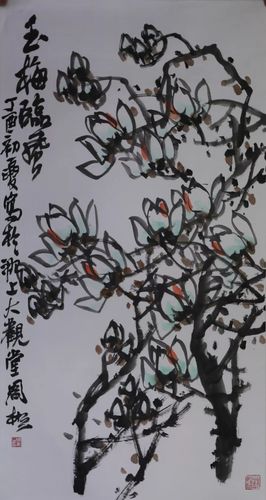 玉梅臨
丁酉初夏寫於上大觀堂周松